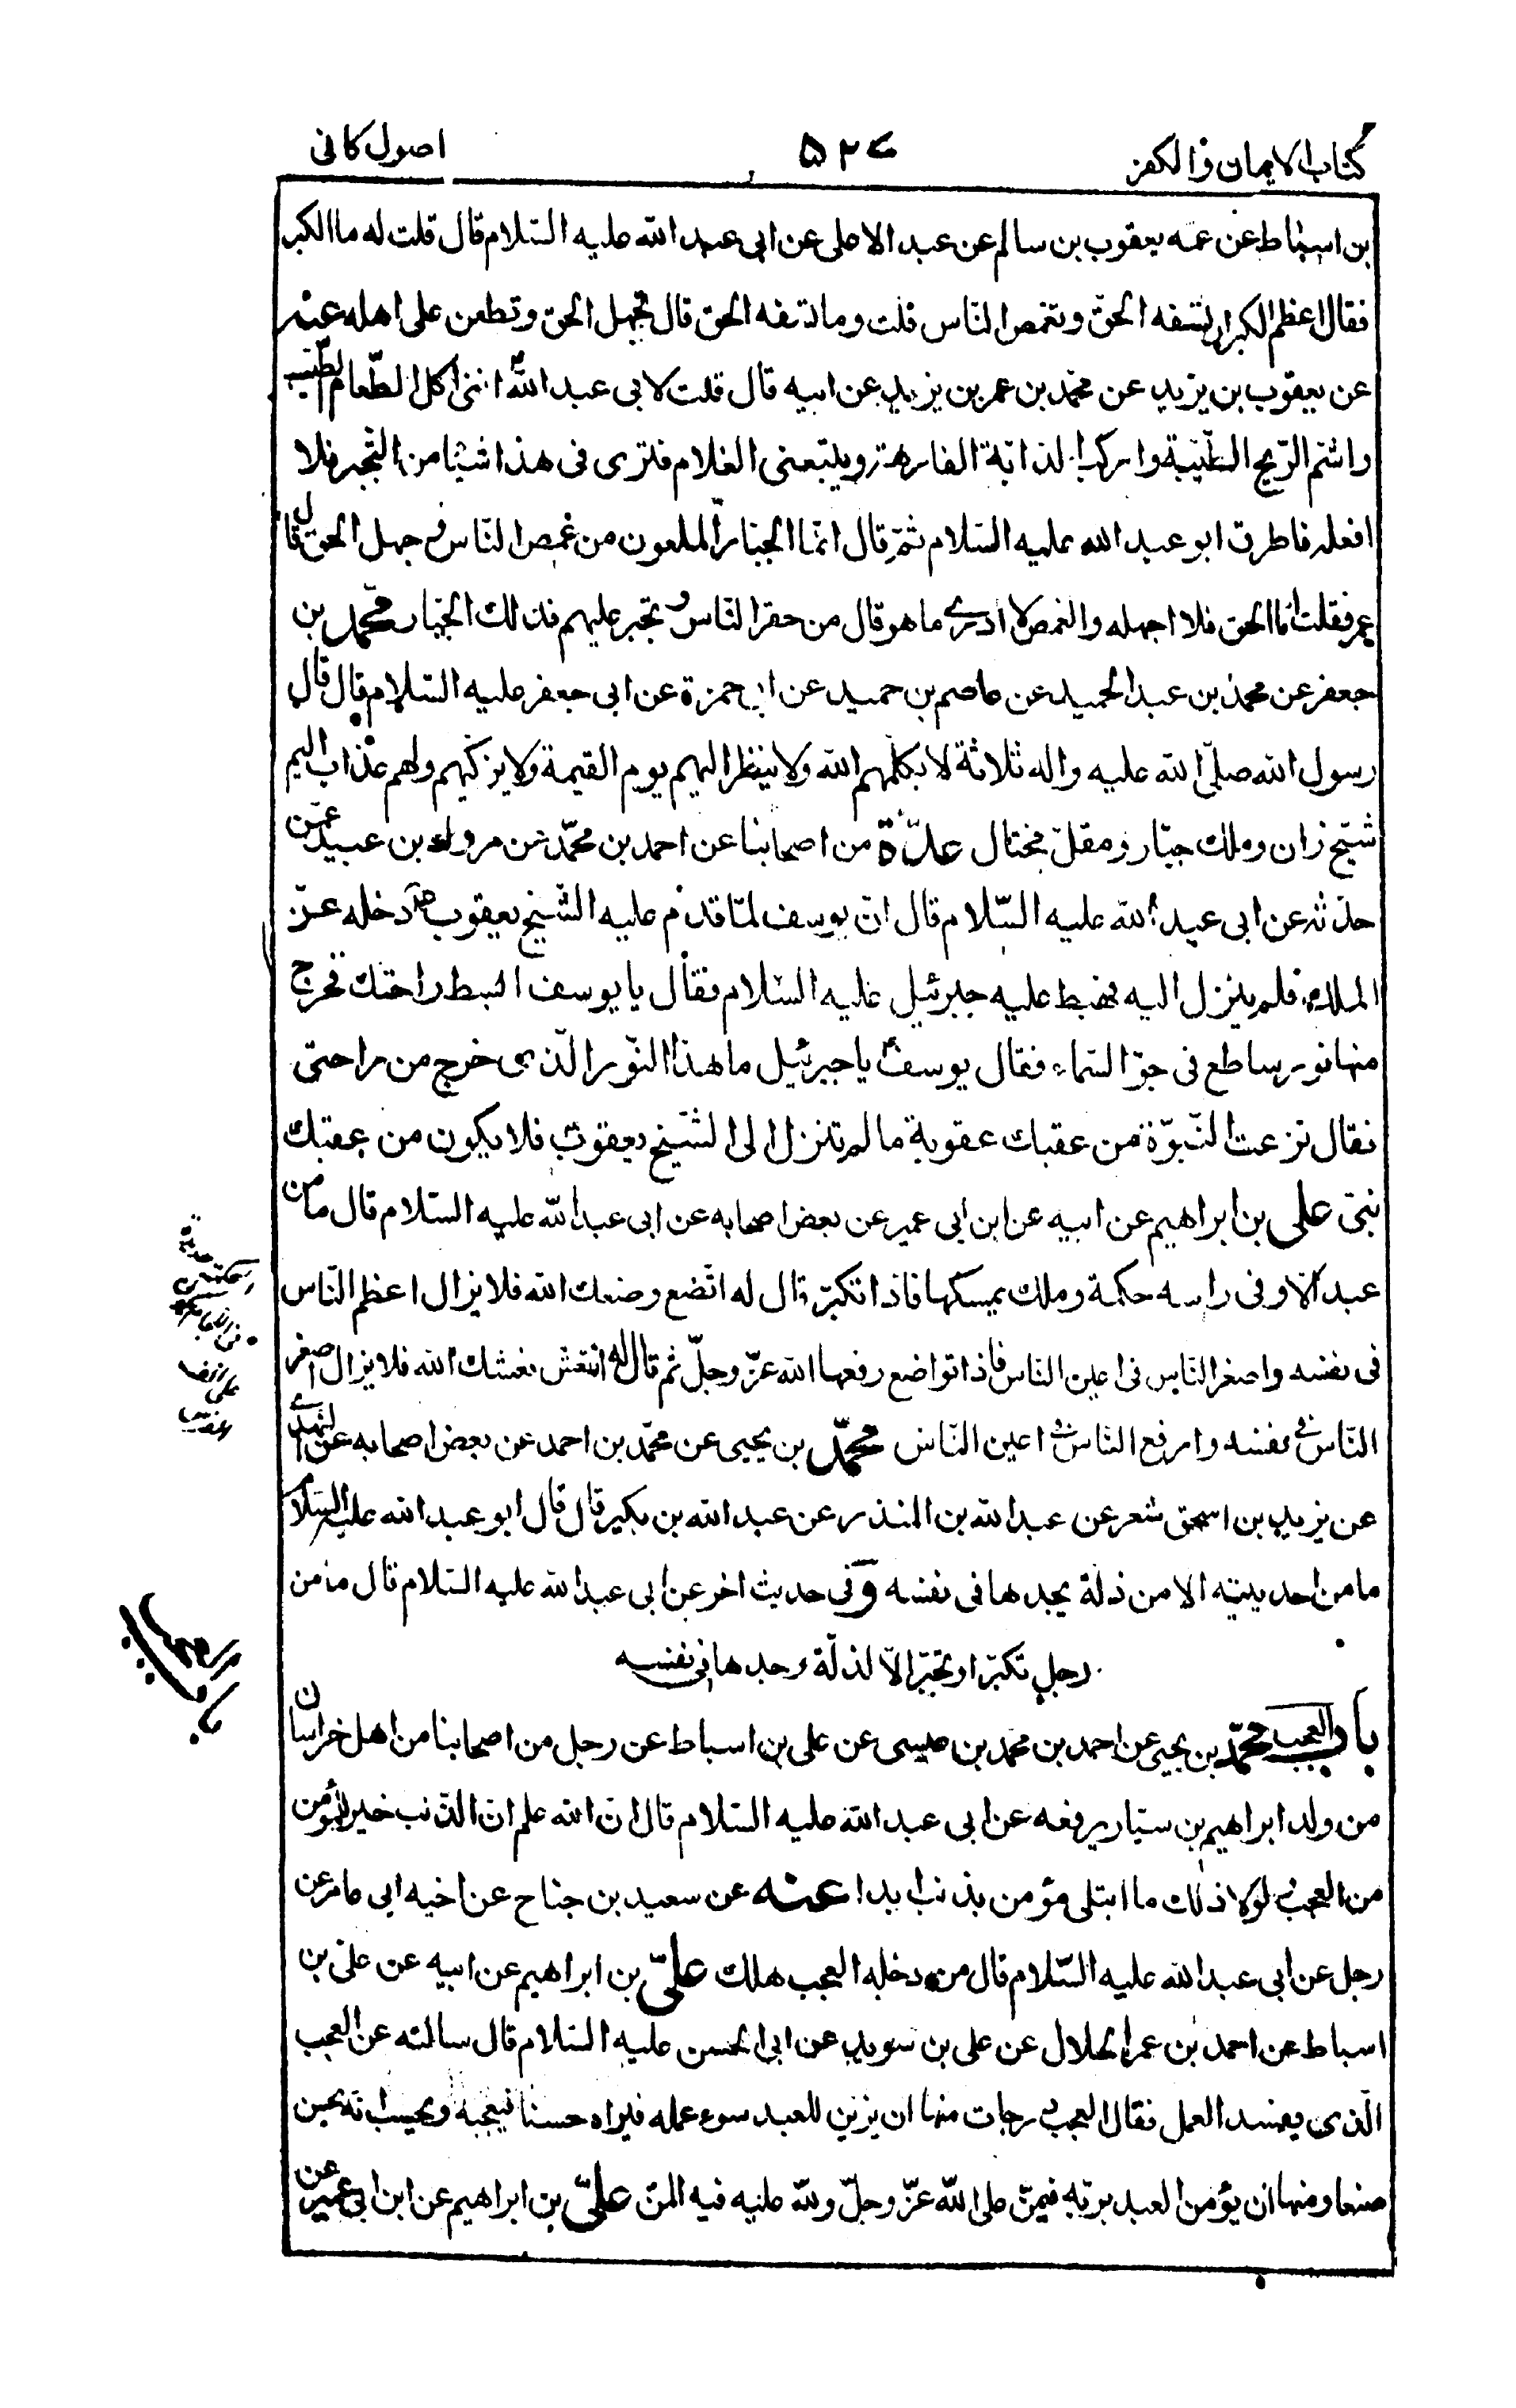 كتاب الايمان والكفر ۵۲۷ اصول كافى
بن اسباط عن عمه يعقوب بن سالم عن عبد الاعلى عن ابى عبد الله عليه السّلام قال قلت له ما الكبر
فقال اعظم الكبر ان تسفه الحقّ وتغمص النّاس قلت وما تسفه الحق قال تجهل الحق وتطعن على اهله عنه
عن يعقوب بن يزيد عن محمّد بن عمر بن يزيد عن ابيه قال قلت لابى عبد اللهؑ اننى اكل الطّعام الطّيّب
واشم الرّيح الطّيّبة واركب الدابّة الفارهة ويتبعنى الغلام فترى فى هذا شيئا من التّجبر فلا
افعله فاطرق ابو عبد الله عليه السّلام ثمّ قال انّما الجبّار الملعون من غمص النّاس و جهل الحق قال
عمر فقلت امّا الحق فلا اجهله والغمص لا ادرى ما هو قال من حقر النّاس و تجبر عليهم فذلك الجبّار محمّد بن
جعفر عن محمد بن عبد الحميد عن عاصم بن حميد عن ابى حمزة عن ابى جعفر عليه السّلام قال قال
رسول الله صلّى الله عليه واله ثلاثة لا يكلّمهم الله ولا ينظر اليهم يوم القيمة ولا يزكّيهم ولهم عذاب اليم
شيخ زان وملك جبّار ومقلّ مختال عدّة من اصحابنا عن احمد بن محمّد عن مروك بن عبيد عمّن
حدّثه عن ابى عبد الله عليه السّلام قال انّ يوسف لمّا قدم عليه الشّيخ يعقوب دخله عزّ
الملك فلم ينزل اليه فهبط عليه جبرئيل عليه السّلام فقال يا يوسف ابسط راحتك فخرج
منها نور ساطع فى جوّ السّماء فقال يوسفؑ يا جبرئيل ما هذا النّور الّذى خرج من راحتى
فقال نزعت النّبوّة من عقبك عقوبة ما لم تنزل الى الشّيخ يعقوب فلا يكون من عقبك
نبىّ على بن ابراهيم عن ابيه عن ابن ابى عمير عن بعض اصحابه عن ابى عبد الله عليه السّلام قال ما من
عبد الّا وفى راسه حكمة وملك يمسكها فاذا تكبّر قال له اتّضع وضعك الله فلا يزال اعظم النّاس
فى نفسه واصغر النّاس فى اعين النّاس فاذا تواضع رفعها الله عزّ وجلّ ثم قال له انتعش نعشك الله فلا يزال اصغر
النّاس فى نفسه وارفع النّاس فى اعين النّاس محمّد بن يحيى عن محمّد بن احمد عن بعض اصحابه عن النّهدى
عن يزيد بن اسحق شعر عن عبد الله بن المنذر عن عبد الله بن بكير قال قال ابو عبد الله عليه السّلام
ما من احد يتيه الا من ذلة يجدها فى نفسه وفى حديث اخر عن ابى عبد الله عليه السّلام قال ما من
رجل تكبّر او تجبّر الّا لذلّة وجدها فى نفسه
باب العجب محمّد بن يحيى عن احمد بن محمد بن عيسى عن على بن اسباط عن رجل من اصحابنا من اهل خراسان
من ولد ابراهيم بن سيّار يرفعه عن ابى عبد الله عليه السّلام قال ان الله علم ان الذّنب خير للمؤمن
من العجب و لولا ذلك ما ابتلى مؤمن بذنب ابدا عنه عن سعيد بن جناح عن اخيه ابى عامر عن
رجل عن ابى عبد الله عليه السّلام قال من دخله العجب هلك علىّ بن ابراهيم عن ابيه عن على بن
اسباط عن احمد بن عمر الحلال عن على بن سويد عن ابى الحسن عليه السّلام قال سالته عن العجب
الّذى يفسد العمل فقال العجب درجات منها ان يزين للعبد سوء عمله فيراه حسنا فيعجبه ويحسب انّه يحسن
صنعا ومنها ان يؤمن العبد بربّه فيمنّ على الله عزّ وجلّ ولله عليه فيه المنّ علىّ بن ابراهيم عن ابن ابى عمير عن